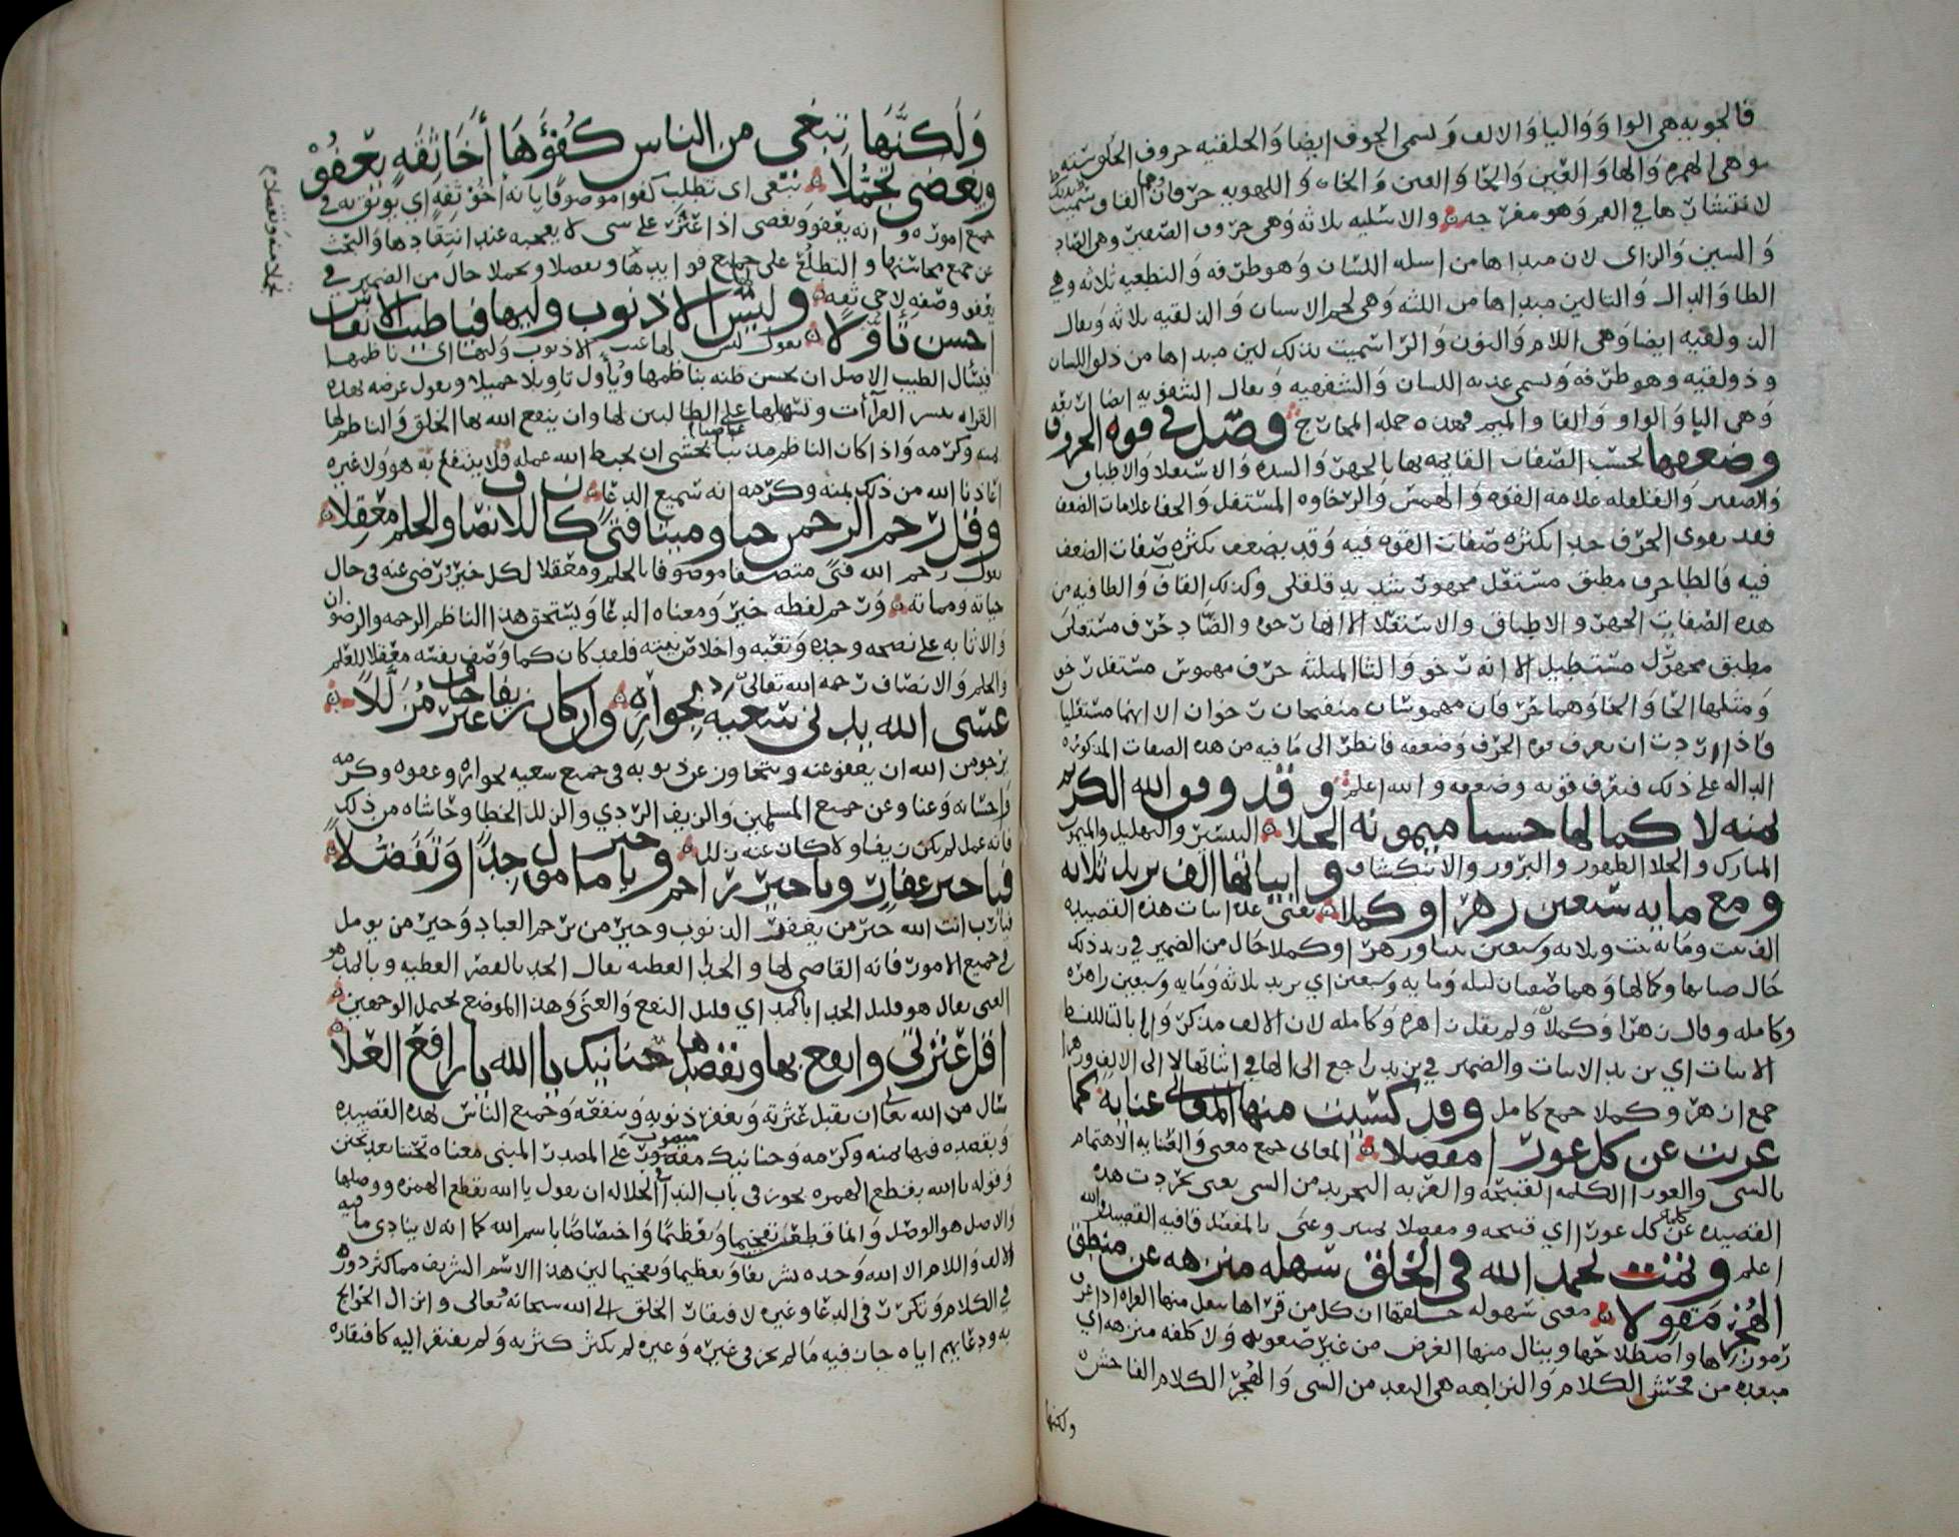 فالجوبيه هي الواو والياو الالف وتسمى الجوف ايضا والحلقيه حروف الحلق سته
وهي الهمزه والها والعين والحا والغين والخاء واللهويه حرفان هما القاف و
لانتشارها في الفم وهو مفرجه والاسليه ثلاثة وهي حروف الصفير وهي الصاد
والسين والزاى لان مبداها من اسلة اللسان وهو طرفه والنطعيه ثلاثه وهي
الطا والدال والتا لين مبداها من اللثه وهي لحم الاسنان والذلقيه ثلاثه ويقال
الذولقيه ايضا وهي اللام والنون والرا سميت بذلك لين مبداها من ذلق اللسان
وذولقيه وهو طرفه وتسمى عذبة اللسان والشفهيه ويقال الشفويه ايضا اربعه
وهي اليا والواو والفا والميم فهذه جمله المخارج فصل في قوة الحروف
وضعفها بحسب الصفات القايمه بها بالجهر والشده والاستعلا والاطباق
والصفير والقلقله علامة القوه والهمس والرخاوه المستفل والخفا علامات الضعف
فقد يقوى الحرف جدا بكثرة صفات القوه فيه وقد يضعف بكثرة صفات الضعف
فيه فالطا حرف مطبق مستعل مجهور شديد قلقلي وكذلك القاف والظا فيه من
هذه الصفات الجهر والاطباق والاستعلا الا انها رخوه والضاد حرف مستعلي
مطبق مجهور مستطيل الا انه رخو والثا المثلثه حرف مهموس مستفل رخو
ومثلها الحا والخا وهما حرفان مهموسان منفتحان رخوان الا انهما مستعليا
فاذا اردت ان تعرف قوة الحرف وضعفه فانظر الى ما فيه من هذه الصفات المذكوره
الداله على ذلك فتعرف قوته وضعفه والله اعلم وقد وفق الله الكريم
بمنه لاكمالها حسنا ميمونة الجلا التيسير والتسهيل والميمون
المبارك والجلا الظهور والبروز والانكشاف وابياتها الف تزيد ثلاثة
ومع مايه سبعين زهرا وكملا يعني عدد ابيات هذه القصيده
الف بيت وماية بيت وثلاثه وسبعين بيتا وزهرا وكملا حال من الضمير في تزيد ذلك
حال ضيايها وكمالها وهما صفتان لثلاثه ومايه وسبعين اي تزيد ثلاثه ومايه وسبعين زاهره
وكامله وقال زهرا وكملا ولم يقل زاهره وكامله لان الالف مذكر وانما بالتا للفظ
الابيات اي تزيد الابيات والضمير في تزيد راجع الى الها في ابياتها لا الى الالف وزهرا
جمع ازهر وكملا جمع كامل وقد كسيت منها المعاني عناية كما
عريت عن كل عوراء مفصلا المعاني جمع معنى والعنايه الاهتمام
بالشي والعورا الكلمه القبيحه والعريه التجريد من الشي يعني تجردت هذه
القصيده عن كل عورا اي قبيحه ومفصلا تمييز وعنى بالمفصل قافية القصيده والله
اعلم وتمت بحمد الله في الخلق سهلة منزهة عن منطق
الهجر مقولا معنى سهولة خلقها ان كل من قراها ينقل منها القراه اذا عرف
رموزها واصطلاحها وينال منها الغرض من غير صعوبه ولا كلفه منزهه اي
مبعده من فحش الكلام والنزاهه هي البعد من الشي والهجر الكلام الفاحش
ولكنها
ولكنها تبغي من الناس كفؤها اخا ثقة يعفو
ويغضي تجملا تبتغي اي تطلب كفوا موصوفا بانه اخو ثقه اي يوثق به في
جميع اموره وانه يعفو ويغضي اذا عثر على شي لا يعجبه عند انتقادها والبحث
عن جميع محاسنها والتطلع على جميع فوايدها وتجملا حال من الضمير في
يعفو وصفه لاخي ثقه وليس لها الا ذنوب وليها فيا طيب الانفاس
احسن تأولا يقول ليس لها عيب الا ذنوب وليها اي ناظمها
فيسال الطيب الاصل ان يحسن ظنه بناظمها ويأول تاويلا جميلا ويقول غرضه بهذه
القراه تيسير القراآت وتسهيلها على الطالبين لها وان ينفع الله بها الخلق والناظم لها
بمنه وكرمه واذا كان الناظم مذنبا عاصيا يخشى ان يحبط الله عمله فلا ينتفع به هو ولا غيره
اعاذنا الله من ذلك بمنه وكرمه انه سميع الدعا
وقل رحم الرحمن حيا وميتا فتى كان للانصاف والحلم معقلا
يقول رحم الله فتى متصفا موصوفا بالحلم ومعقلا لكل خير ورضى عنه في حال
حياته ومماته ورحم لفظه خبر ومعناه الدعا ويستحق هذا الناظم الرحمه والرضوان
والاثابه على نصحه وجده وتعبه واخلاص نيته فلقد كان كما وصف نفسه معقلا للعلم
والحلم والانصاف رحمه الله تعالى
عسى الله يدني سعيه بجوازه وان كان زيفا غير خاف مزللا
نرجو من الله ان يعفو عنه ويتجاوز عن ذنوبه في جميع سعيه بجوازه وعفوه وكرمه
واحسانه وعنا وعن جميع المسلمين والزيف الردي والزلل الخطا وحاشاه من ذلك
فانه عمل لم يكن زيفا ولا كان عنه زللا
فيا خير غفار ويا خير راحم ويا خير مامول جدا وتفضلا
فيارب انت الله خير من يغفر الذنوب وخير من يرحم العباد وخير من يومل
في جميع الامور فانه القاضي لها والجدا العطيه يقال الجدا بالقصر العطيه وبالمد هو
الغنى يقال هو قليل الجدا بالمد اي قليل النفع والغنى وهذا الموضع يحتمل الوجهين
اقل عثرتي وانفع بها وبقصدها حنانيك يا الله يا رافع العلا
سال من الله تعالى ان يقيل عثرته ويغفر ذنوبه وينفعه وجميع الناس بهذه القصيده
وبقصده فيها بمنه وكرمه وحنانيك منصوب على المصدر المبني معناه تحننا بعد تحنن
وقوله يا الله بقطع الهمزه يجوز في باب الندا الجلاله ان يقول يا الله بقطع الهمزه ووصلها
والاصل هو الوصل وانما قطعت تفخيما وتعظيما واختصاصا باسم الله كما انه لا ينادي ما فيه
الالف واللام الا الله وحده تشريفا وتعظيما وتفخيما لين هذا الاسم الشريف مما كثر دوره
في الكلام وتكرر في الدعا وغيره لافتقار الخلق الى الله سبحانه وتعالى وانزال الحوايج
به ودعايهم اياه جاز فيه ما لم يجز في غيره وغيره لم يكثر كثرته ولم يفتقر اليه كافتقاره